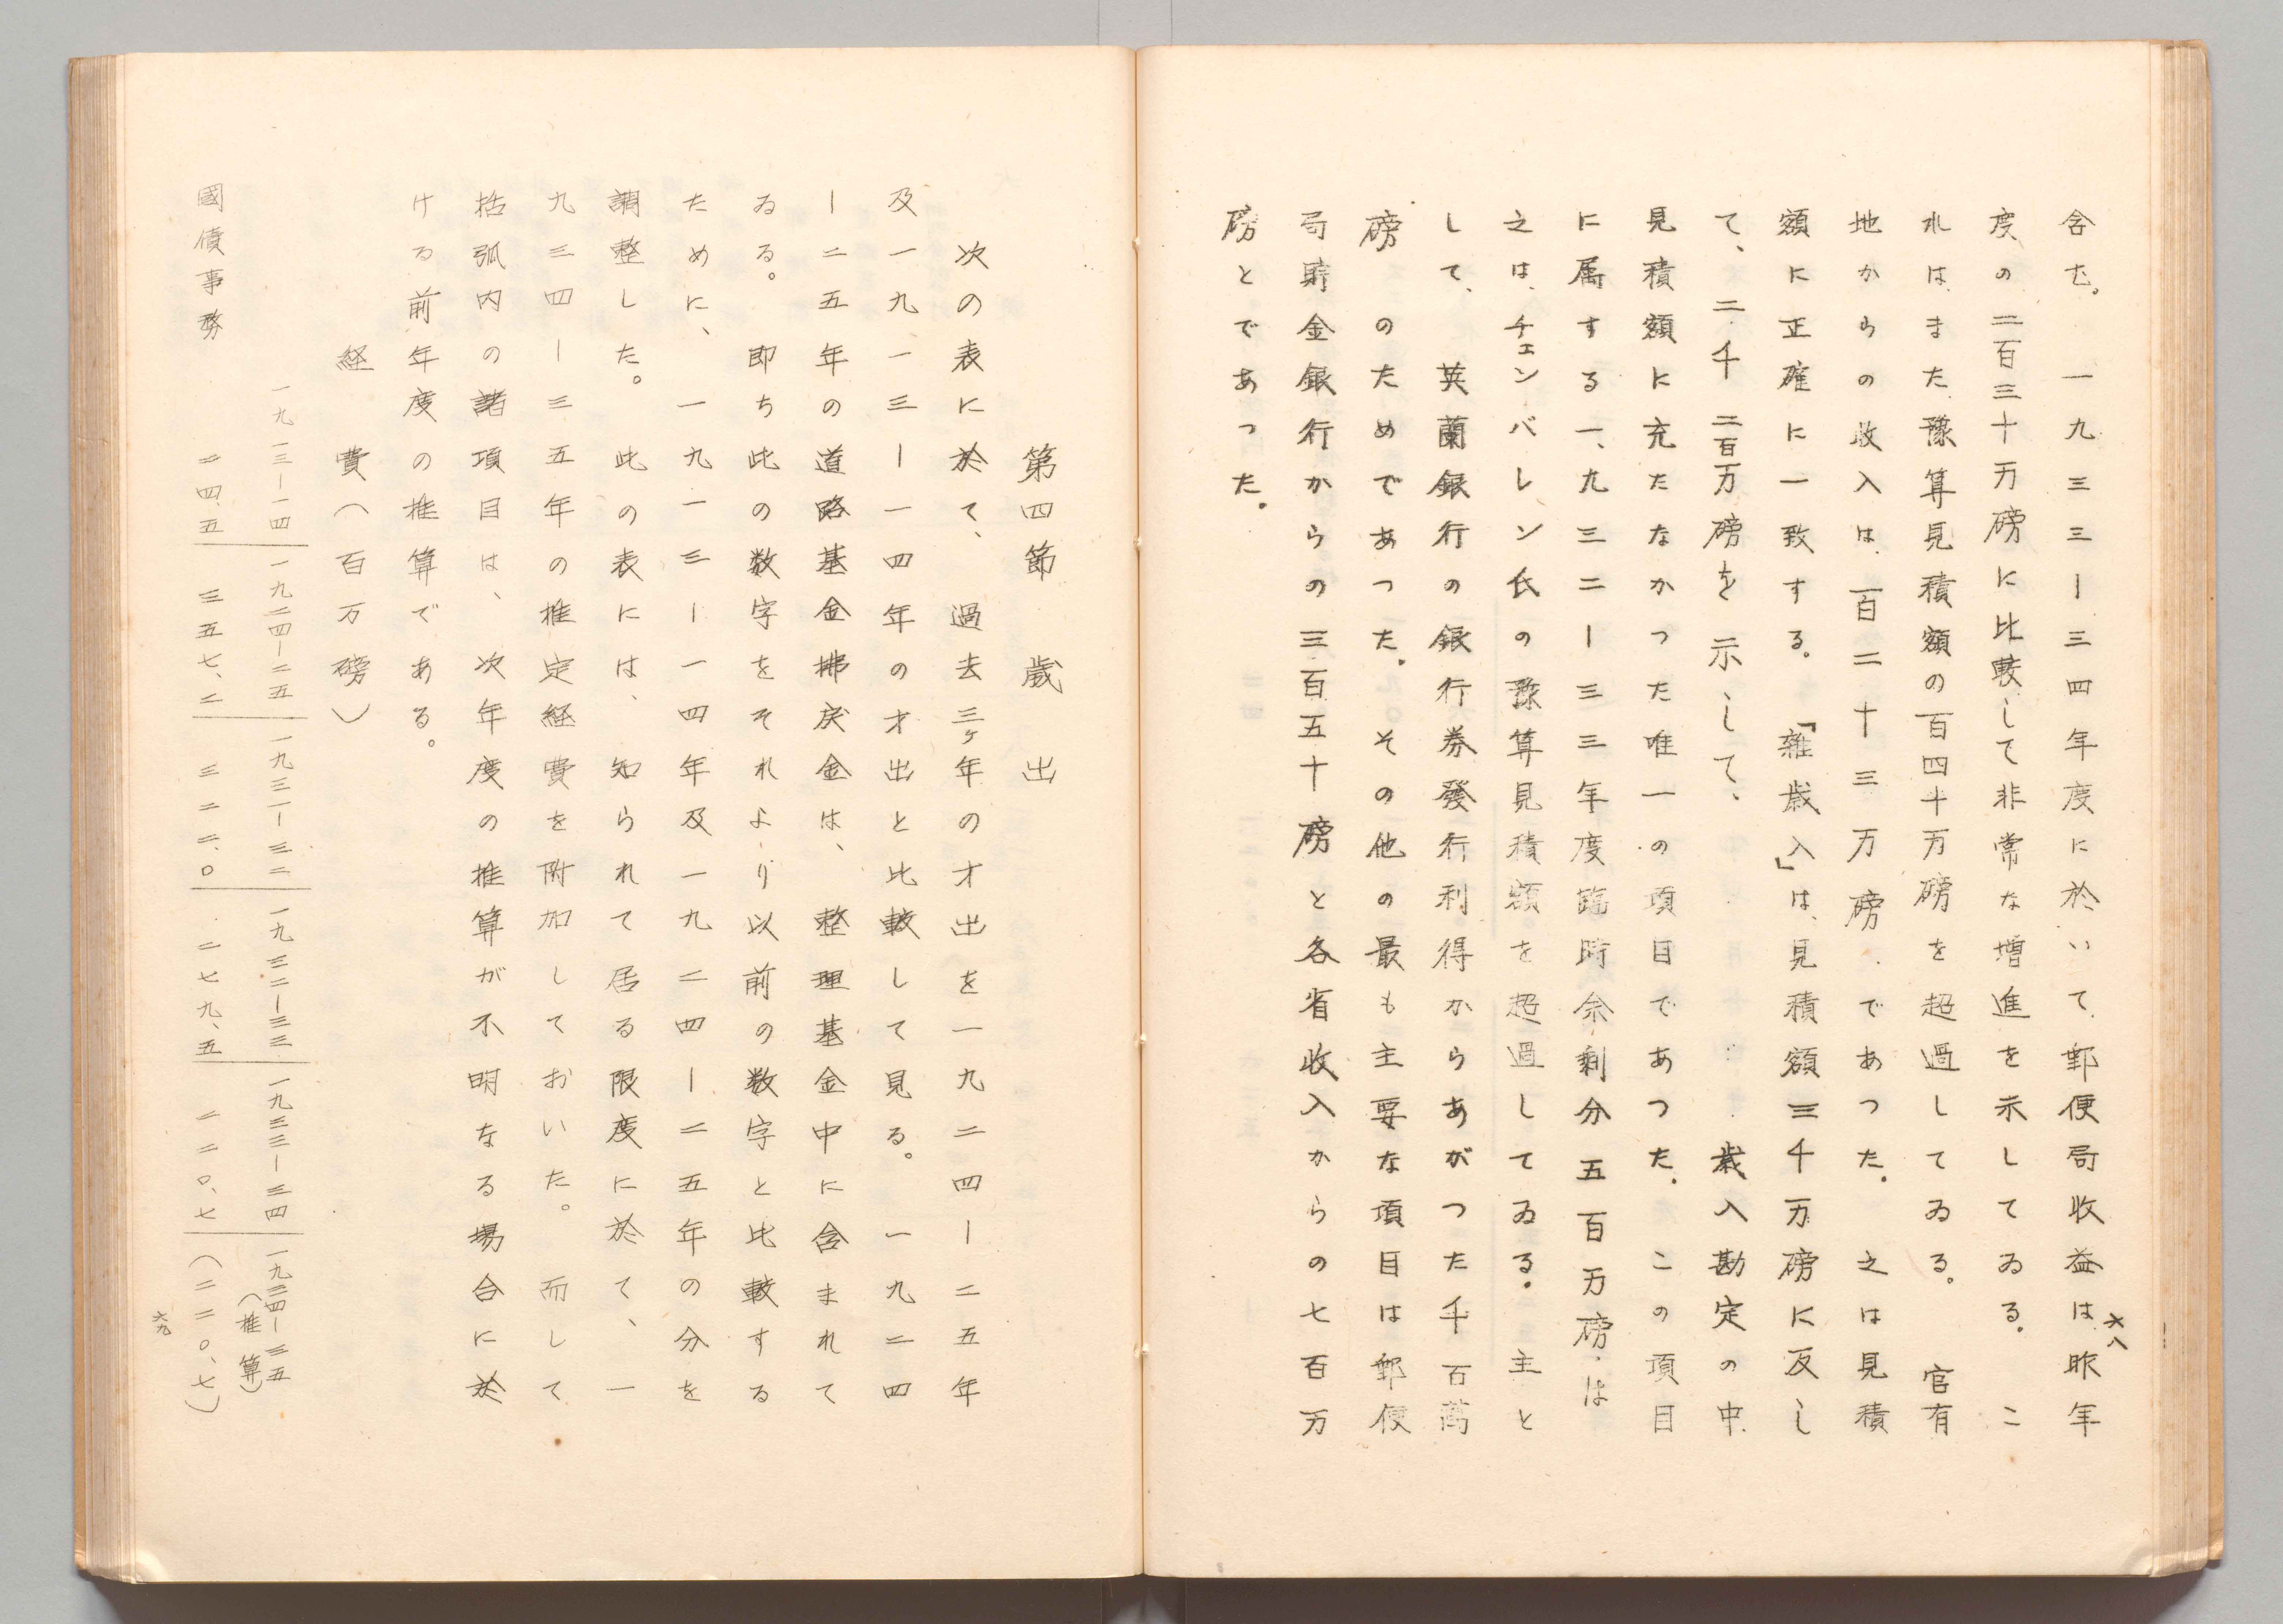 六八
含む。　一九三三ー三四年度に於いて郵便局收益は昨年
度の二百三十万磅に比較して非常な増進を示してゐる。こ
れはまた豫算見積額の百四十万磅を超過してゐる。　官有
地からの收入は、百二十三万磅であつた。　之は見積
額に正確に一致する。「雑歳入」は、見積額三千万磅に反し
て、二千二百万磅を示して、　歳入勘定の中
見積額に充たなかつた唯一の項目であつた。　この項目
に属する一、九三二ー三三年度臨時余剰分五百万磅は
之は、チェンバレン氏の豫算見積額を超過してゐる。　主と
して、　英蘭銀行の銀行券發行利得からあがつた千百萬
磅　のためであつた。　その他の最も主要な項目は郵便
局貯金銀行からの三百五十磅と各省收入からの七百万
磅とであつた。
第四節　歳　出
次の表に於て、過去三ヶ年の才出を一九二四ー二五年
及一九一三ー一四年の才出と比較して見る。一九二四
ー二五年の道路基金拂戻金は、整理基金中に含まれて
ゐる。　即ち此の数字をそれより以前の数字と比較する
ために、　一九一三ー一四年及一九二四ー二五年の分を
調整した。　此の表には、知られて居る限度に於て、一
九三四ー三五年の推定経費を附加しておいた。　而して
括弧内の諸項目は、　次年度の推算が不明なる場合に於
ける前年度の推算である。
経　費（百万磅）
一九一三ー一四　一九二四ー二五　一九三一ー三二　一九三二ー三三　一九三三ー三四　一九三四ー三五
（推算）
國債事務　二四、五　三五七、二　三二二、〇　二七九、五　二二〇、七　（二二〇、七）
六九